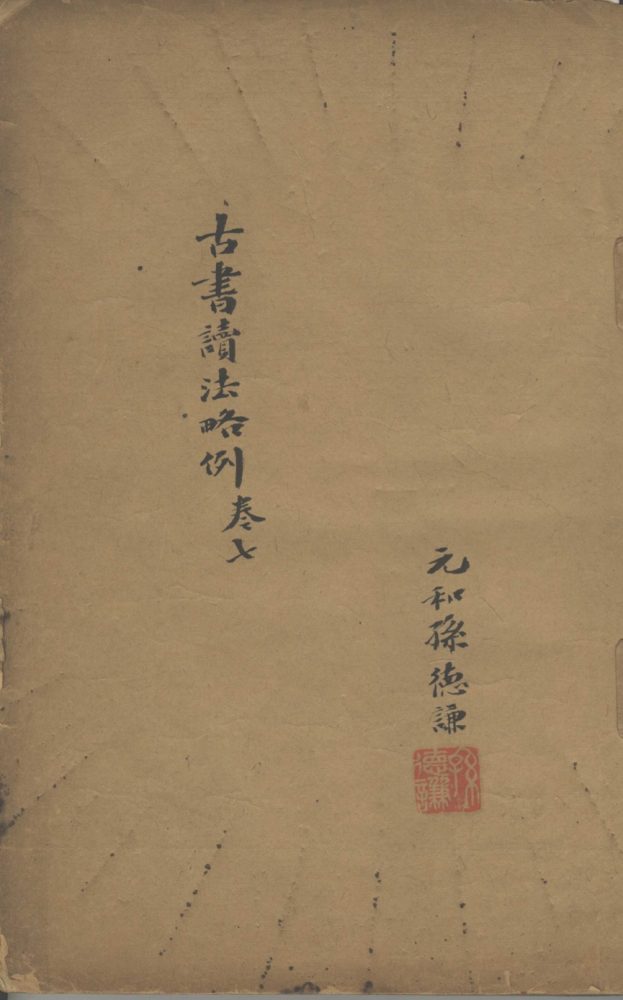 元和孫德謙
孫
德謙
古書讀法略例卷七